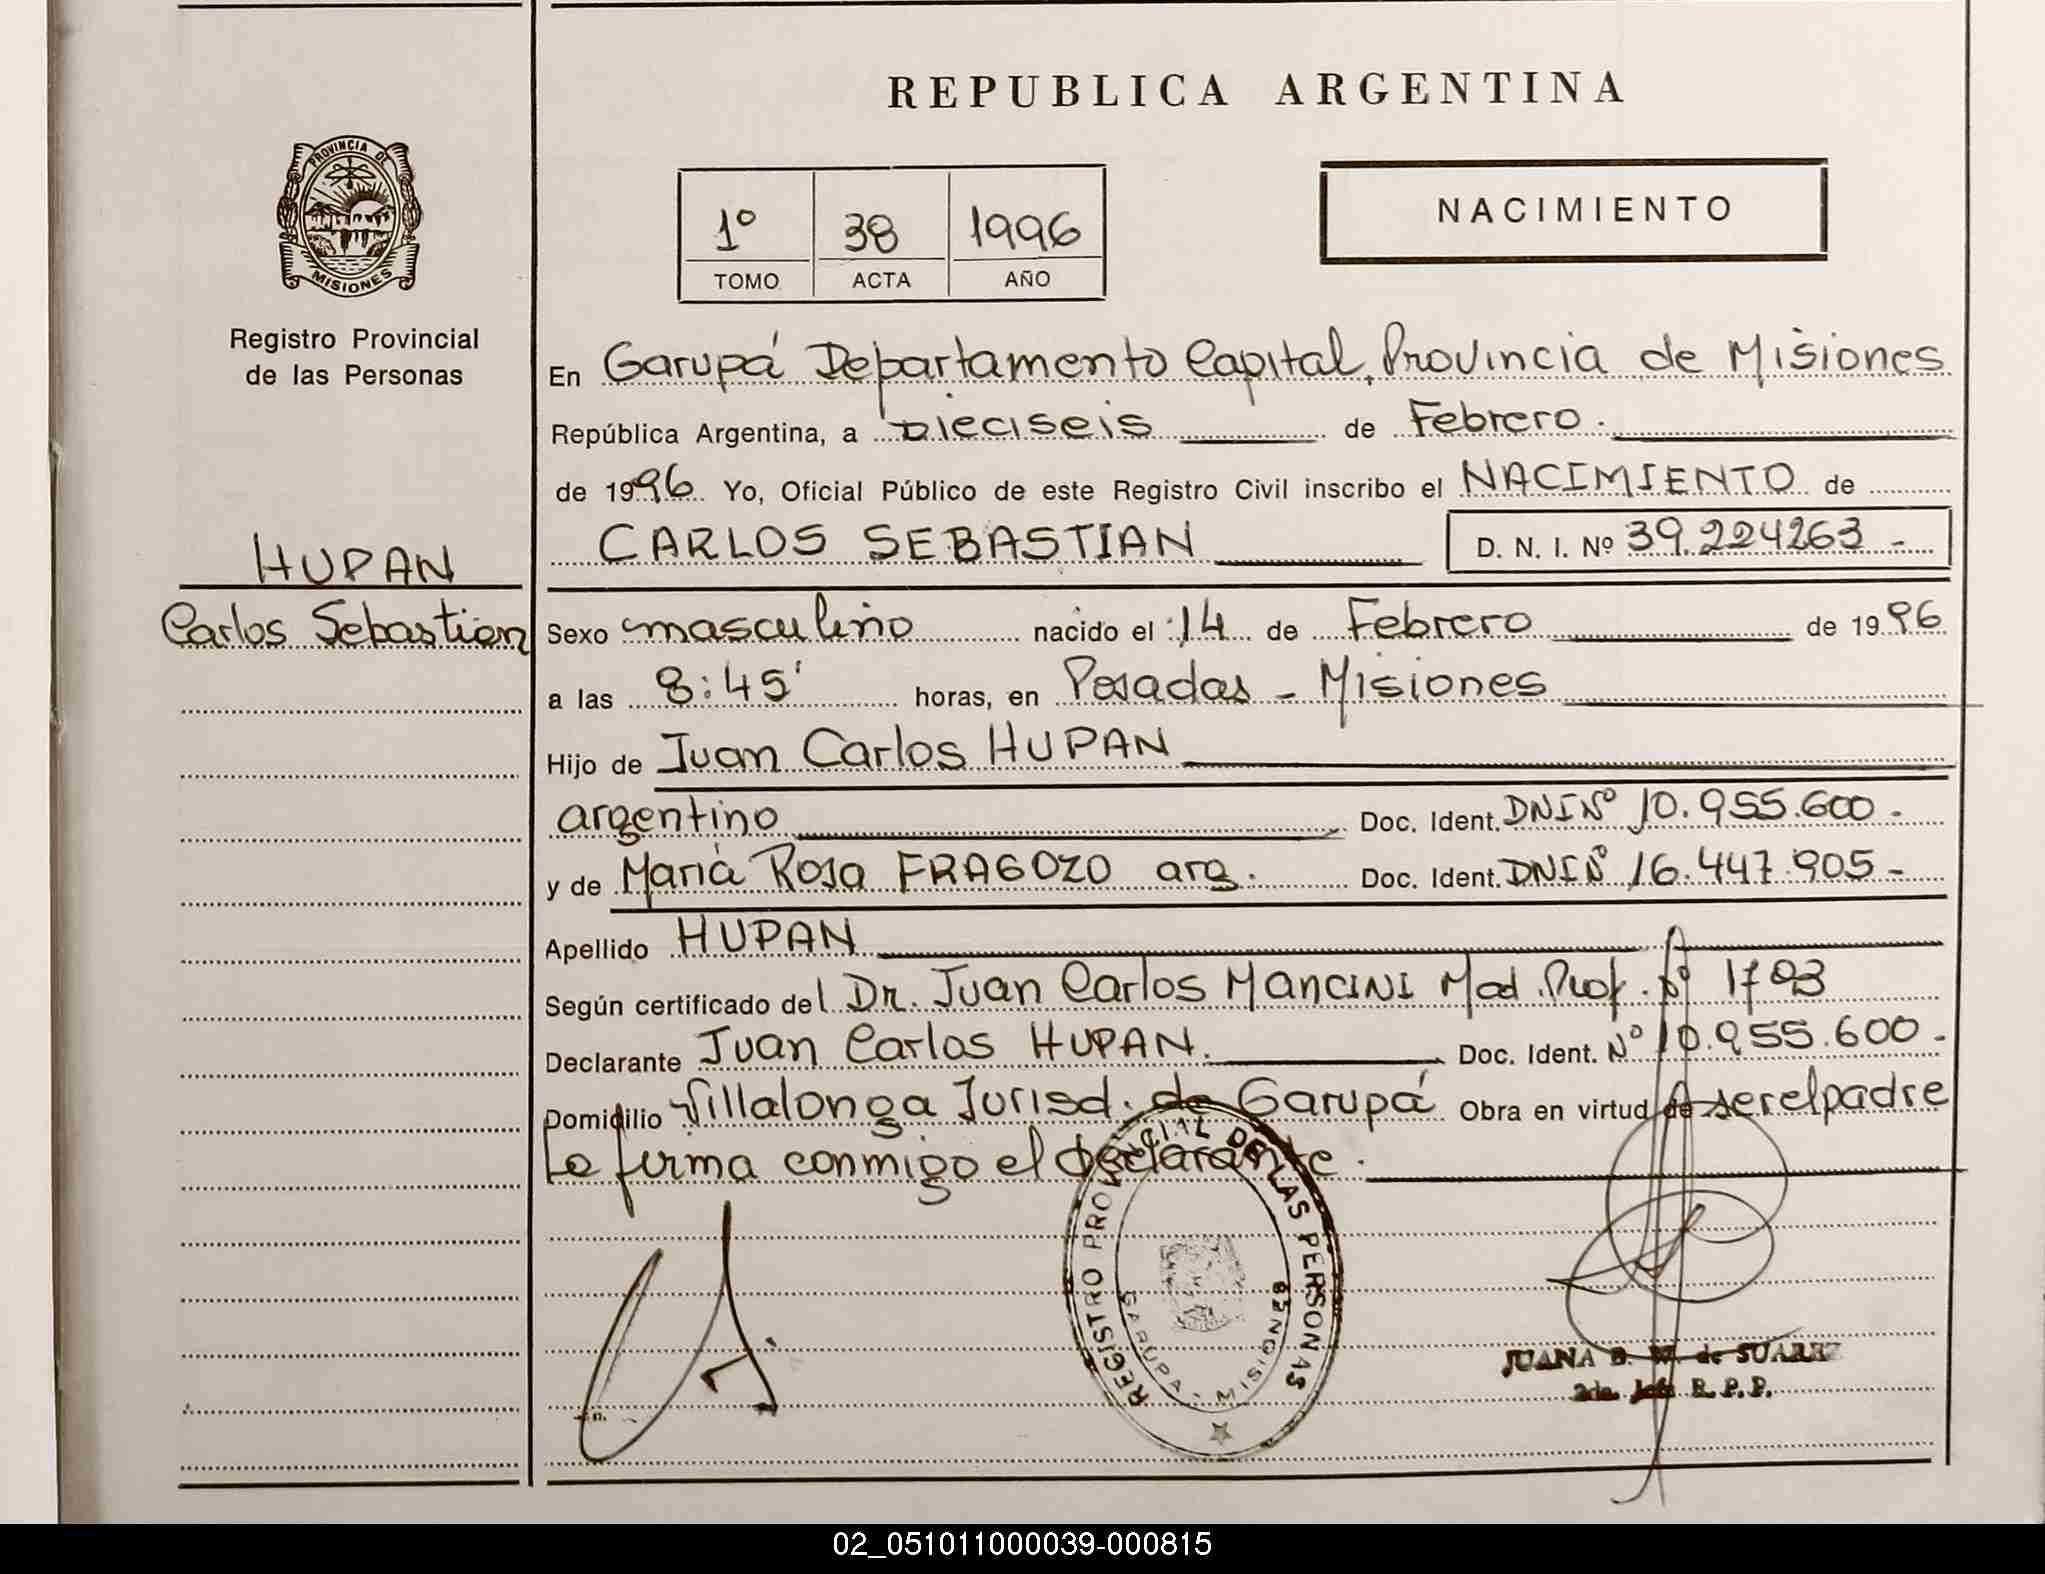 REPUBLICA ARGENTINA
PROVINCIA DE
MISIONES
Registro Provincial
de las Personas
1º 38 1996
TOMO ACTA AÑO
NACIMIENTO
En Garupá Departamento Capital, Provincia de Misiones
República Argentina, a Dieciseis de Febrero.
de 1996 Yo, Oficial Público de este Registro Civil inscribo el NACIMIENTO de
CARLOS SEBASTIAN D. N. I. Nº 39.224263 -
HUPAN
Carlos Sebastian
Sexo masculino nacido el 14 de Febrero de 1996
a las 8:45' horas, en Posadas - Misiones
Hijo de Juan Carlos HUPAN
argentino Doc. Ident. DNI Nº 10.955.600 -
y de María Rosa FRAGOZO arg. Doc. Ident. DNI Nº 16.447.905 -
Apellido HUPAN
Según certificado del Dr. Juan Carlos MANCINI Mad. Prof. Nº 1703
Declarante Juan Carlos HUPAN. Doc. Ident. Nº 10.955.600 -
Domicilio Villalonga Jurisd. de Garupá Obra en virtud de ser el padre
Le firma conmigo el declarante.
REGISTRO PROVINCIAL DE LAS PERSONAS
GARUPA - MISIONES
JUANA B. W. de SUAREZ
2da. Jefe R. P. P.
02_051011000039-000815